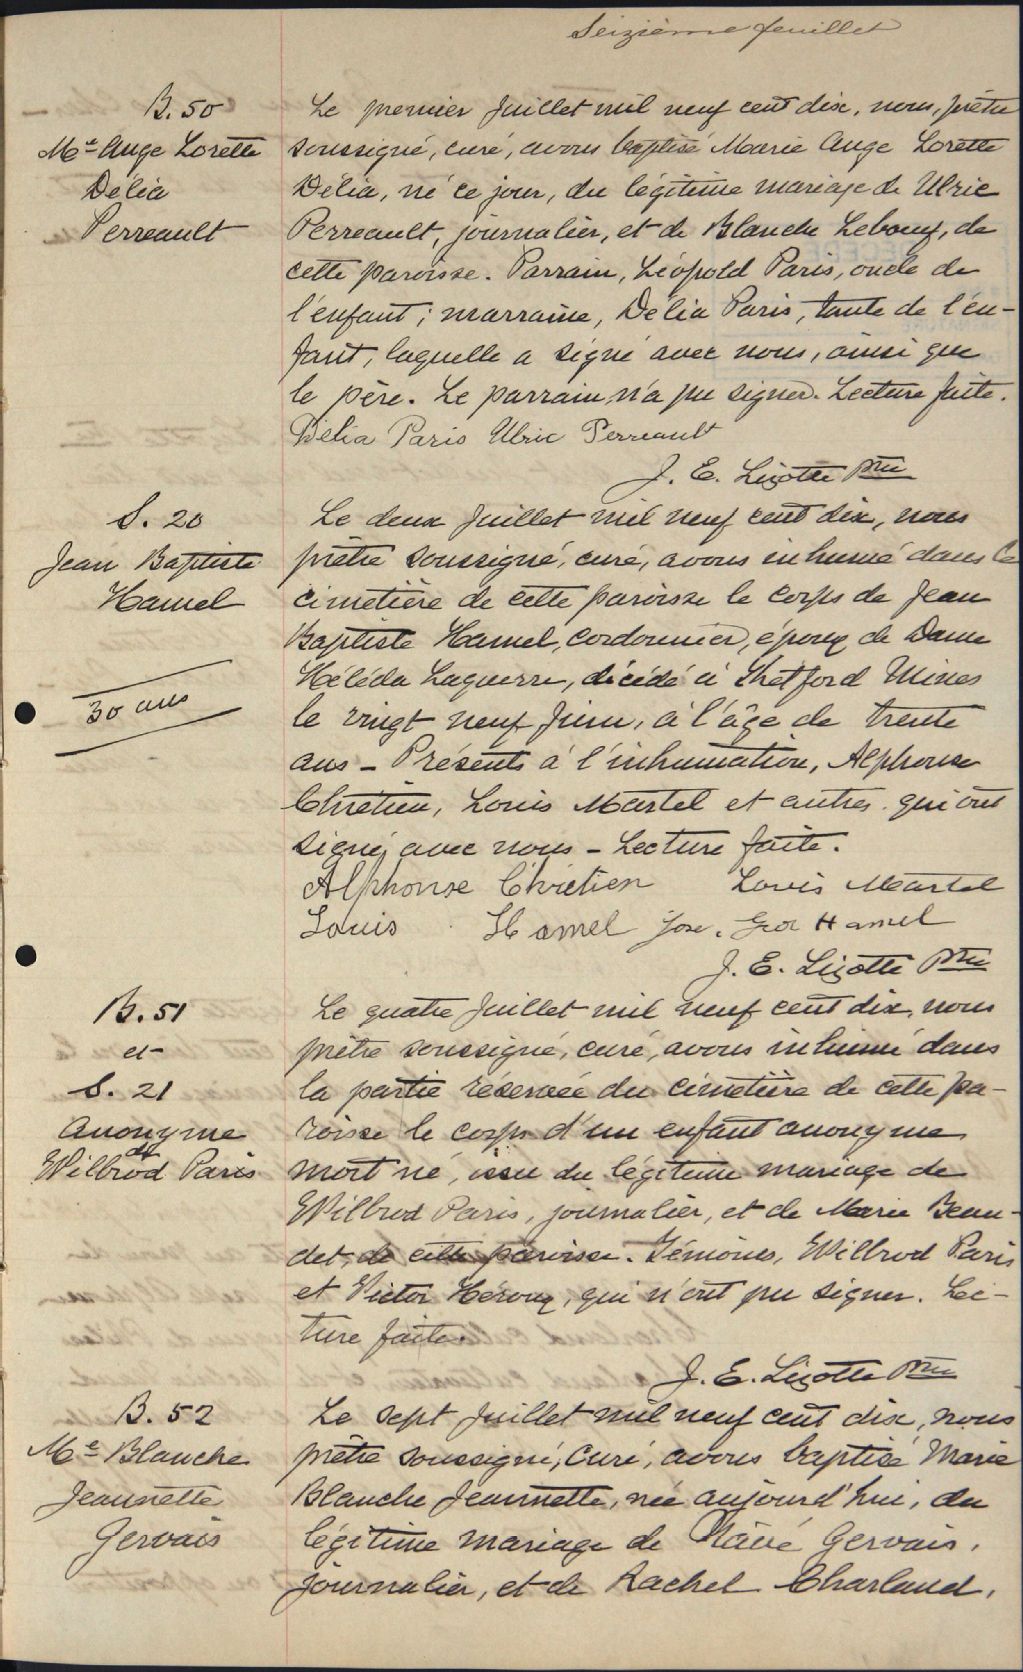 Seizième feuillet
B. 50
Mᵉ Ange Lorette
Délia
Perreault
Le premier Juillet mil neuf cent dix, nous, prêtre
soussigné, curé, avons baptisé Marie Ange Lorette
Délia, né ce jour, du légitime mariage de Ulric
Perreault, journalier, et de Blanche Lebœuf, de
cette paroisse. Parrain, Léopold Paris, oncle de
l'enfant; marraine, Délia Paris, tante de l'en-
fant, laquelle a signé avec nous, ainsi que
le père. Le parrain n'a pu signer. Lecture faite.
Délia Paris Ulric Perreault
J. E. Lizotte Ptre
S. 20
Jean Baptiste
Hamel
30 ans
Le deux Juillet mil neuf cent dix, nous
prêtre soussigné, curé, avons inhumé dans le
cimetière de cette paroisse le corps de Jean
Baptiste Hamel, cordonnier, époux de Dame
Héléda Laguerre, décédé à Thetford Mines
le vingt neuf Juin, à l'âge de trente
ans – Présents à l'inhumation, Alphonse
Chrétien, Louis Martel et autres qui ont
signé avec nous – Lecture faite.
Alphonse Chrétien Louis Martel
Louis Hamel Jos. Geo Hamel
J. E. Lizotte Ptre
B. 51
et
S. 21
Anonyme
de
Wilbrod Paris
Le quatre Juillet mil neuf cent dix, nous
prêtre soussigné, curé, avons inhumé dans
la partie réservée du cimetière de cette pa-
roisse le corps d'un enfant anonyme
mort né, issu du légitime mariage de
Wilbrod Paris, journalier, et de Marie Beau-
det, de cette paroisse. Témoins, Wilbrod Paris
et Victor Héroux, qui n'ont pu signer. Lec-
ture faite.
J. E. Lizotte Ptre
B. 52
Mᵉ Blanche
Jeannette
Gervais
Le sept Juillet mil neuf cent dix, nous
prêtre soussigné, curé, avons baptisé Marie
Blanche Jeannette, née aujourd'hui, du
légitime mariage de Gervais,
journalier, et de Rachel Charland,